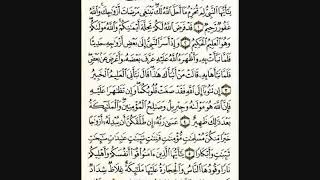 يَٰٓأَيُّهَا ٱلنَّبِىُّ لِمَ تُحَرِّمُ مَآ أَحَلَّ ٱللَّهُ لَكَ تَبْتَغِى مَرْضَاتَ أَزْوَٰجِكَ وَٱللَّهُ
غَفُورٌ رَّحِيمٌ ١ قَدْ فَرَضَ ٱللَّهُ لَكُمْ تَحِلَّةَ أَيْمَٰنِكُمْ وَٱللَّهُ مَوْلَىٰكُمْ
وَهُوَ ٱلْعَلِيمُ ٱلْحَكِيمُ ٢ وَإِذْ أَسَرَّ ٱلنَّبِىُّ إِلَىٰ بَعْضِ أَزْوَٰجِهِۦ حَدِيثًا
فَلَمَّا نَبَّأَتْ بِهِۦ وَأَظْهَرَهُ ٱللَّهُ عَلَيْهِ عَرَّفَ بَعْضَهُۥ وَأَعْرَضَ عَنۢ بَعْضٍ
فَلَمَّا نَبَّأَهَا بِهِۦ قَالَتْ مَنْ أَنۢبَأَكَ هَٰذَا قَالَ نَبَّأَنِىَ ٱلْعَلِيمُ ٱلْخَبِيرُ
٣ إِن تَتُوبَآ إِلَى ٱللَّهِ فَقَدْ صَغَتْ قُلُوبُكُمَا وَإِن تَظَٰهَرَا عَلَيْهِ
فَإِنَّ ٱللَّهَ هُوَ مَوْلَىٰهُ وَجِبْرِيلُ وَصَٰلِحُ ٱلْمُؤْمِنِينَ وَٱلْمَلَٰٓئِكَةُ
بَعْدَ ذَٰلِكَ ظَهِيرٌ ٤ عَسَىٰ رَبُّهُۥٓ إِن طَلَّقَكُنَّ أَن يُبْدِلَهُۥٓ أَزْوَٰجًا
خَيْرًا مِّنكُنَّ مُسْلِمَٰتٍ مُّؤْمِنَٰتٍ قَٰنِتَٰتٍ تَٰٓئِبَٰتٍ عَٰبِدَٰتٍ سَٰٓئِحَٰتٍ
ثَيِّبَٰتٍ وَأَبْكَارًا ٥ يَٰٓأَيُّهَا ٱلَّذِينَ ءَامَنُوا۟ قُوٓا۟ أَنفُسَكُمْ وَأَهْلِيكُمْ
نَارًا وَقُودُهَا ٱلنَّاسُ وَٱلْحِجَارَةُ عَلَيْهَا مَلَٰٓئِكَةٌ غِلَاظٌ شِدَادٌ